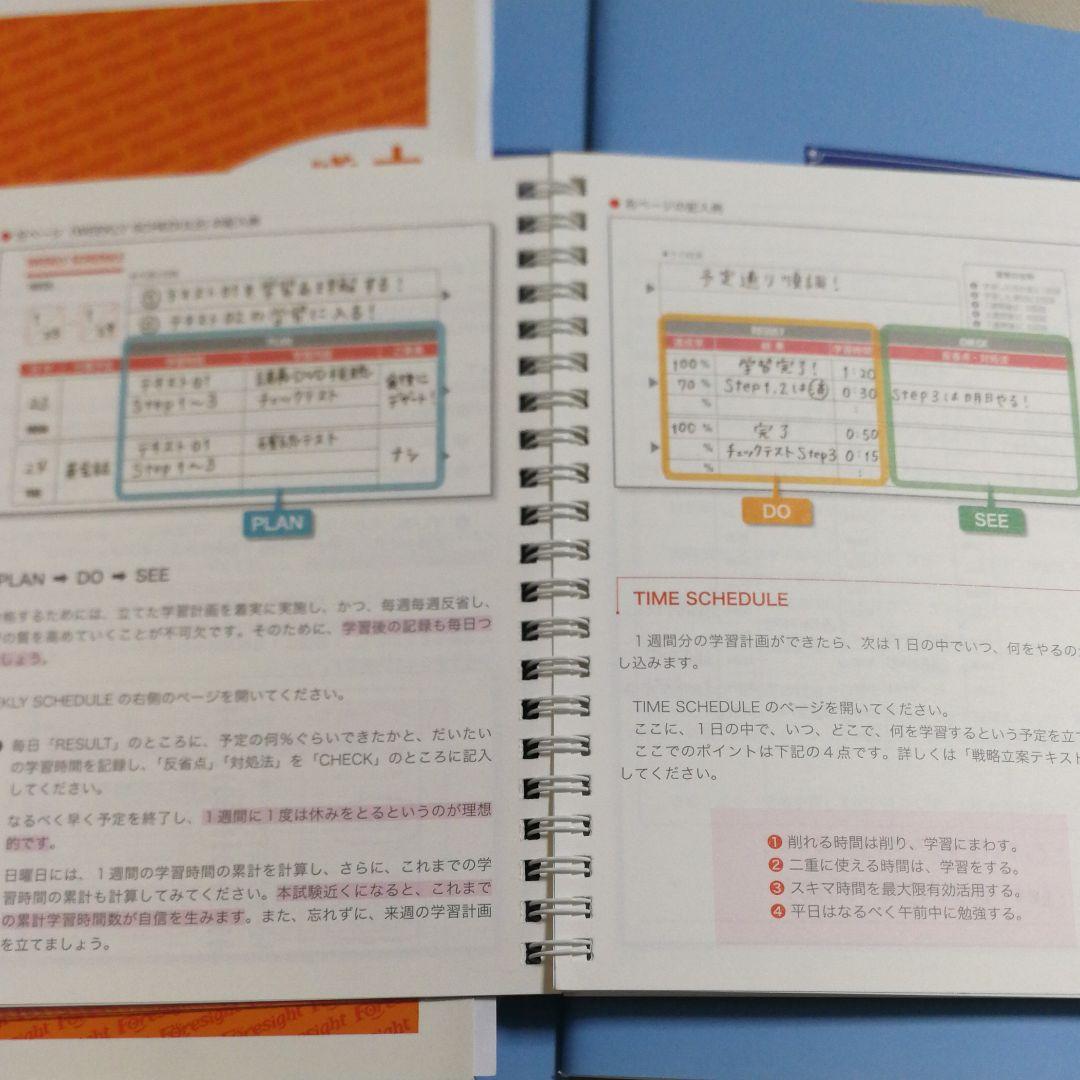 WEEKLY SCHEDULE
① テキスト01を学習&理解する！
② テキスト02の学習に入る！
PLAN
テキスト01
Step1〜3
講義DVD視聴
チェックテスト
食後に
デザート！
テキスト01
Step1〜3
確認テスト
ナシ
PLAN
PLAN ➡ DO ➡ SEE
格するためには、立てた学習計画を着実に実施し、かつ、毎週毎週反省し、
の質を高めていくことが不可欠です。そのために、学習後の記録も毎日つ
しょう。
KLY SCHEDULE の右側のページを開いてください。
毎日「RESULT」のところに、予定の何％ぐらいできたかと、だいたい
の学習時間を記録し、「反省点」「対処法」を「CHECK」のところに記入
してください。
なるべく早く予定を終了し、１週間に１度は休みをとるというのが理想
的です。
日曜日には、１週間の学習時間の累計を計算し、さらに、これまでの学
習時間の累計も計算してみてください。本試験近くになると、これまで
の累計学習時間数が自信を生みます。また、忘れずに、来週の学習計画
を立てましょう。
Foresight
● 右ページの記入例
予定通り順調！
RESULT
達成率 結果 学習時間
100% 学習完了！ 1:20
70% Step1,2は 0:30
%
100% 完了 0:50
% チェックテストStep3 0:15
%
CHECK
反省点・対処法
Step3は明日やる！
DO
SEE
TIME SCHEDULE
１週間分の学習計画ができたら、次は１日の中でいつ、何をやるの
し込みます。
TIME SCHEDULE のページを開いてください。
ここに、１日の中で、いつ、どこで、何を学習するという予定を立
ここでのポイントは下記の４点です。詳しくは「戦略立案テキスト
してください。
❶ 削れる時間は削り、学習にまわす。
❷ 二重に使える時間は、学習をする。
❸ スキマ時間を最大限有効活用する。
❹ 平日はなるべく午前中に勉強する。